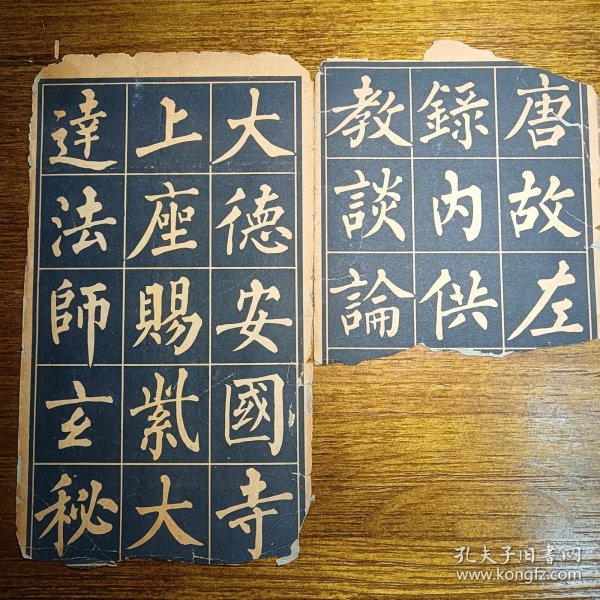 唐故左
錄內供
教談論
大德安國寺
上座賜紫大
達法師玄秘
孔夫子旧书网
www.kongfz.com